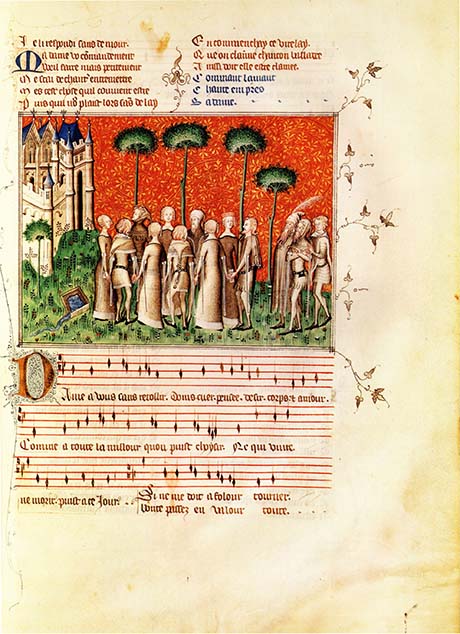 Je li respondi sans demour.
Ma dame vo commandement
Weil faire mais petitement
Me scai de chant entremettre
Mes cest chose quil couvient estre
Puis quil vous plaist lors sans delay
En commencay ce virelay
Que on claimme chancon
Ainssi doit elle estre clamee
Comment lamant
Chante empres
Sa dame.
Dame a vous sans retollir. Doins cuer pensee. desir. corps et amour.
Comme a toute la millour quon puist choysir. Ne qui vivre
ne morir. puist a ce jour.
Si ne me doit a folour tourner.
passez en valour toute.